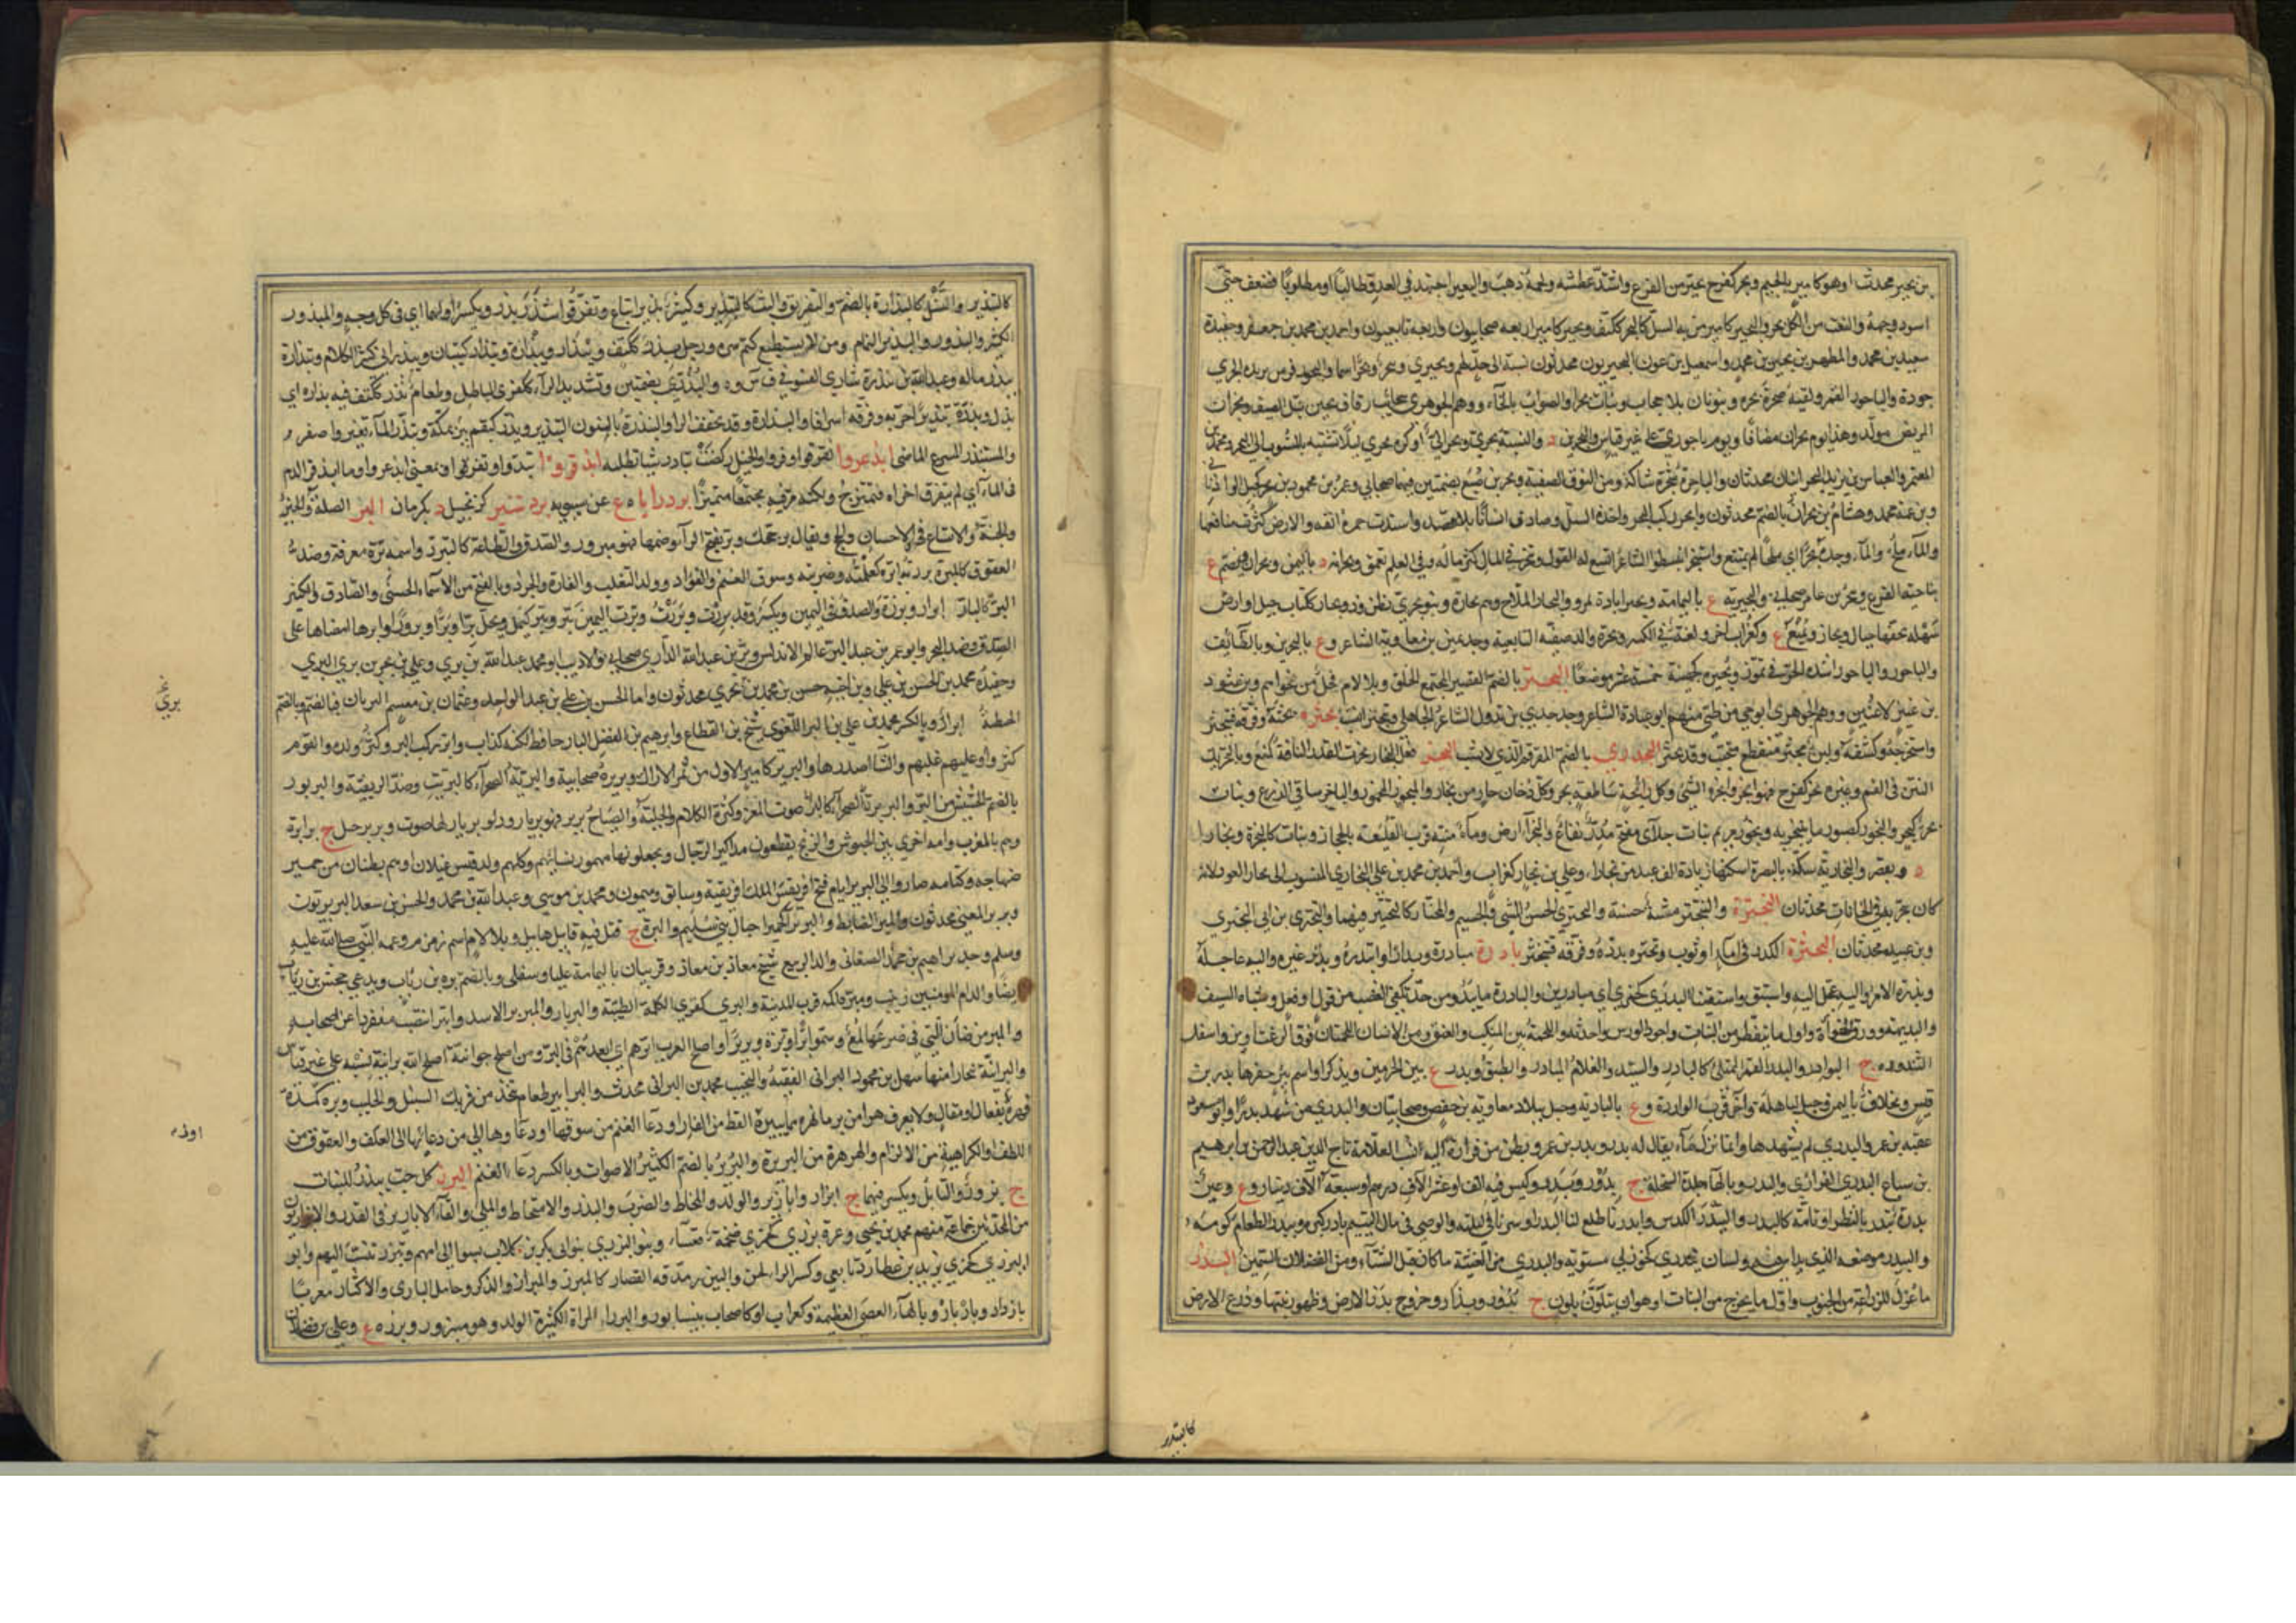 بن بجير محدث او هو كامير بالجيم وبحر كفرح تحير من الفزع واشتد عطشه ولحمه ذهب والبعير اجتهد في العدو طالبا او مطلوبا فضعف حتى
اسود وجهه والنعت من الكل بحر والبحير كامير من به السل كالبحر ككتف وبحير كامير اربعة صحابيون واربعة تابعيون واحمد بن محمد بن جعفر وحفيده
سعيد بن محمد والمطهر بن بحير بن محمد واسمعيل بن عون البحيريون محدثون نسبة الى جد لهم وبحيرى وبحر وبحرا اسما والبحور فرس يزيده الجري
جودة والباحور القمر ولقيته صحرة بحرة وينونان بلا حجاب وبنات بحر او الصواب بالخاء ووهم الجوهري سحائب رقاق يجئن قبل الصيف وبحران
المريض مولد وهذا يوم بحران مضافا ويوم باحوري على غير قياس والبحرين د والنسبة بحري وبحراني او كره بحري لئلا يشتبه بالمنسوب الى البحر ومحمد بن
المعتمر والعباس بن يزيد البحرانيان محدثان والباحرة شجرة شاكة ومن النوق الصفية وبحر بن ضبع بضمتين فيهما صحابي وعمر بن محمود بن بحر كجبل الواذناني
وابن عمه محمد وهشام بن بحران بالضم محدثون وابحر ركب البحر واخذه السل وصادف انسانا بلا قصد واستدت حمرة انفه والارض كثرت مناقعها
والماء ملح والماء وجده بحرا اي ملحا لم يسغ واستبحر انبسط والشاعر اتسع له القول وتبحر في المال كثر ماله وفي العلم تعمق وبحرانة د باليمن وبحران ويضم ع
بناحية الفرع وبحر بن عامر صحابي والبحيرية ع باليمامة وبحيراباذ ة بمرو والبحار الملاح وهم بحارة وبنو بحري بطن وذو بحار ككتاب جبل وارض
سهلة تحفها جبال وبحار ويمنع ع وكغراب اخر ولغة في الكسر وبحرة والد صفية التابعية وجد يمين بن معاوية الشاعر وع بالبحرين وة بالطائف
والباحور والباحوراء شدة الحر في تموز وبحيرة كجهينة خمسة عشر موضعا البحتر بالضم القصير المجتمع الخلق وبلا لام فحل من فحولهم وبن عتود
بن عنيز لا عنين ووهم الجوهري ابو حي من طي منهم ابو عبادة الشاعر وجد جدي بن تدول الشاعر الجاهلي وتبحتر انتسب بحثره بحثه وفرقه فتبحثر
واستخرجه وكشفه ولبن مبحثر منقطع متحبب وقد بحثر البحدري بالضم المقرقم الذي لا يشب البخر فعل البخار بخرت القدر كمنع وبالتحريك
النتن في الفم وغيره بخر كفرح فهو ابخر وابخره الشيء وكل رائحة ساطعة بخر وكل دخان حار من بخار والمبخور المخمور والباخر ساقي الزرع وبنات
بخر كبحر والبخور كصبور ما يتبخر به وبخور مريم نبات جلاء مفتح مدر نفاع والبخراء ارض وماءة منتنة قرب القليعة بالحجاز ونبات كالبحرة وبخارا
د ويقصر والبخارية سكة بالبصرة اسكنها زياد الف عبد من بخارا وعلي بن بخار كغراب واحمد بن محمد بن علي البخاري المنسوب الى بخار العود لانه
كان يبخر به في الخانات محدثان البخترة والتبختر مشية حسنة والبختري الحسن المشي والجسيم والمختال كالبختير فيهما والبختري بن ابي البختري
وبن عبيد محدثان البخثرة الكدر في الماء او ثوب وبخثره بدده وفرقه فتبخثر بادره مبادرة وبدارا وابتدره وبدر غيره واليه عاجله
وبدره الامر واليه عجل اليه واستبق واستبقنا البدرى كجمزى اي مبادرين والبادرة ما يبدر من حدتك في الغضب من قول او فعل وشباة السيف
والبديهة وورق الحواءة واول ما يتفطر من النبات واجود الورس واحدثه واللحمة بين المنكب والعنق ومن الانسان اللحمتان فوق الرغثاوين واسفل
الثندوة ج البوادر والبدر القمر الممتلئ كالبادر والسيد والغلام المبادر والطبق وبدر ع بين الحرمين ويذكر او اسم بئر حفرها بدر بن
قريش ومخلاف باليمن وجبل لباهلة واخر قرب الواردة وع بالبادية وجبل ببلاد معاوية بن حفص وصحابيان والبدري من شهد بدرا وابو مسعود
عقبة بن عمر والبدري لم يشهدها وانما نزل ماء يقال له بدر وبدر بن عمرو بطن من فزارة اليه نسب العلامة تاج الدين عبد الرحمن بن ابرهيم
بن سباع البدري الفزاري والبدر وبالهاء جلد السخلة ج بدور وبدر وكيس فيه الف او عشرة الاف درهم او سبعة الاف دينار وع وعين
بدرة تبدر بالنظر او تامة كالبدر والبيدر الكدس وابدرنا طلع لنا البدر او سرنا في ليلته والوصي في مال اليتيم بادر كبره وبيدر الطعام كومه
والبيدر موضعه الذي يداس فيه ولسان بيدرى كخوزلى مستوية والبدري من الغيث ما كان قبل الشتاء ومن الفصلان السمين البذر
ما عزل للزراعة من الحبوب واول ما يخرج من النبات او هو ان يتلون بلون ج بذور وبذار وخروج بذر الارض وظهور نبتها وزرع الارض
كالبتذير
كالتبذير والنسل كالبذارة بالضم والتفريق والبث كالتبذير وكثير بذير اتباع وتفرقوا شذر بذر ويكسر اولهما اي في كل وجه والمبذور
الكثير والبذور والبذير النمام ومن لا يستطيع كتم سره ورجل بذر ككتف وبيذار وبيذارة وتبذار كتبيان وبيذراني كثير الكلام وتبذارة
يبذر ماله وعبدالله بن بيذرة شاري الفسو في ف س و والبذري بضمتين وتشديد الراء كفرى الباطل وطعام بذر ككتف فيه بذارة اي
نزل وبذره تبذيرا خربه وفرقه اسرافا والبذارة وقد تخفف الراء والنبذرة بالنون التبذير وبذر كبقم بئر بمكة وتبذر الماء تغير واصفر
والمستبذر المسرع الماضي ابذعروا تفرقوا وفروا والخيل ركضت تبادر شيئا تطلبه ابذقروا تبددوا وتفرقوا في معنى ابذعروا وما ابذقر الدم
في الماء اي لم يتفرق اجزاؤه فتمتزج به ولكنه مر فيه مجتمعا متميزا بردرايا ه ع عن سيبويه بردشير كزنجبيل د بكرمان البر الصلة والخير
والجنة والاتساع في الاحسان والحج ويقال برحجك وبر بفتح الراء وضمها فهو مبرور والصدق والطاعة كالتبرر واسمه برة معرفة وضد
العقوق كالمبرة بررته ابره كعلمته وضربته وسوق الغنم والفؤاد وولد الثعلب والفارة والجرذ وبالفتح من الاسماء الحسنى والصادق والكثير
البر كالبار ج ابرار وبررة والصدق في اليمين ويكسر وقد بررت وبررت وبرت اليمين تبر وتبر كيمل ويحل برا وبرا وبرورا وابرها امضاها على
الصدق وضد البحر وابو عمر بن عبد البر عالم الاندلس وبر بن عبدالله الداري صحابي والاديب ابو محمد عبد الله بن بري وعلي بن بحر بن بري البري
وحفيده محمد بن الحسن بن علي وبن اخيه حسن بن محمد بن بحر بري محدثون واما الحسن بن علي بن عبد الواحد وعثمان بن مقسم البريان فبالضم وبالضم
الحنطة ج ابرار وبالكسر محمد بن علي بن البر اللغوي شيخ بن القطاع وابرهيم بن الفضل البار حافظ لكنه كذاب وابر ركب البر وكثر ولده والقوم
كثروا وعليهم غلبهم والشاء اصدرها والبرير كامير الاول من ثمر الاراك وبريرة صحابية والبرية الصحراء كالبريت وضد الريفية والبربور
بالضم الجشيش من البر والبربرة صوت المعز وكثرة الكلام والجلبة والصياح بربر فهو بربار ودلو بربار لها صوت وبربر جيل ج برابرة
وهم بالمغرب وامة اخرى بين الحبوش والزنج يقطعون مذاكير الرجال ويجعلونها مهور نسائهم وكلهم ولد قيس عيلان او هم بطنان من حمير
صنهاجة وكتامة صاروا الى البربر ايام فتح افريقش الملك افريقية وسابق وميمون ومحمد بن موسى وعبدالله بن محمد والحسن بن سعد البربريون
وبربر المغني محدثون والمبر الضابط والبريراء كحميراء جبال بني سليم والبرة ع قتل فيه قابيل هابيل وبلا لام اسم زمزم وعمة النبي صلى الله عليه
وسلم وجد ابراهيم بن محمد الصنعاني والد الربيع شيخ معاذ بن معاذ وقريتان باليمامة عليا وسفلى وبالضم بره بن رئاب ويدعى جحش بن رئاب
ايضا والد ام المومنين زينب ومبرة اكمة قرب المدينة والبرى كقرى الكلمة الطيبة والبربار والمبربر الاسد وابتر انتصب منفردا عن اصحابه
والمبر من الضأن التي في ضرعها لمع وسموا برا وبرة وبريرا واصلح العرب ابرهم اي ابعدهم في البر ومن اصلح جوانيه اصلح الله برانيه نسبة على غير قياس
والبرانية ة ببخارا منها سهل بن محمود البراني الفقيه والنجيب محمد بن البراني محدث والبرابير طعام يتخذ من فريك السنبل والحليب وبره كمده
قهره بفعال او مقال ولا يعرف هرا من بر ما يهره مما يبره او القط من الفار او دعاء الغنم من سوقها او دعاؤها الى الماء من دعائها الى العلف والعقوق من
اللطف والكراهية من الاكرام والهرهرة من البربرة والبربر بالضم الكثير الاصوات وبالكسر دعاء الغنم البزر كل حب يبذر للنبات
ج بزور والتابل ويكسر فيهما ج ابزار وابازير والولد والمخاط والضرب والبذر والامتخاط والملء والقاء الابازير في القدر والابزاريون
من المحدثين جماعة منهم محمد بن يحيى وعزة بزرى كجمزى ضخمة قعساء وبنو البزرى بنو ابي بكر بن كلاب نسبوا الى امهم وتبزر تنسب اليهم وابو
البزرى كجمزى يزيد بن عطارد تابعي وكسر الراء لحن والبيزر مدقة القصار كالمبزر والبيزار الذكر وحامل البازي والاكار معربا
بازدار وبازيار وبالهاء العصا العظيمة وكغراب او كاصحاب بنيسابور والبزراء المراة الكثيرة الولد وهو مبزور وبزره ع وعلي بن فضلان
بري